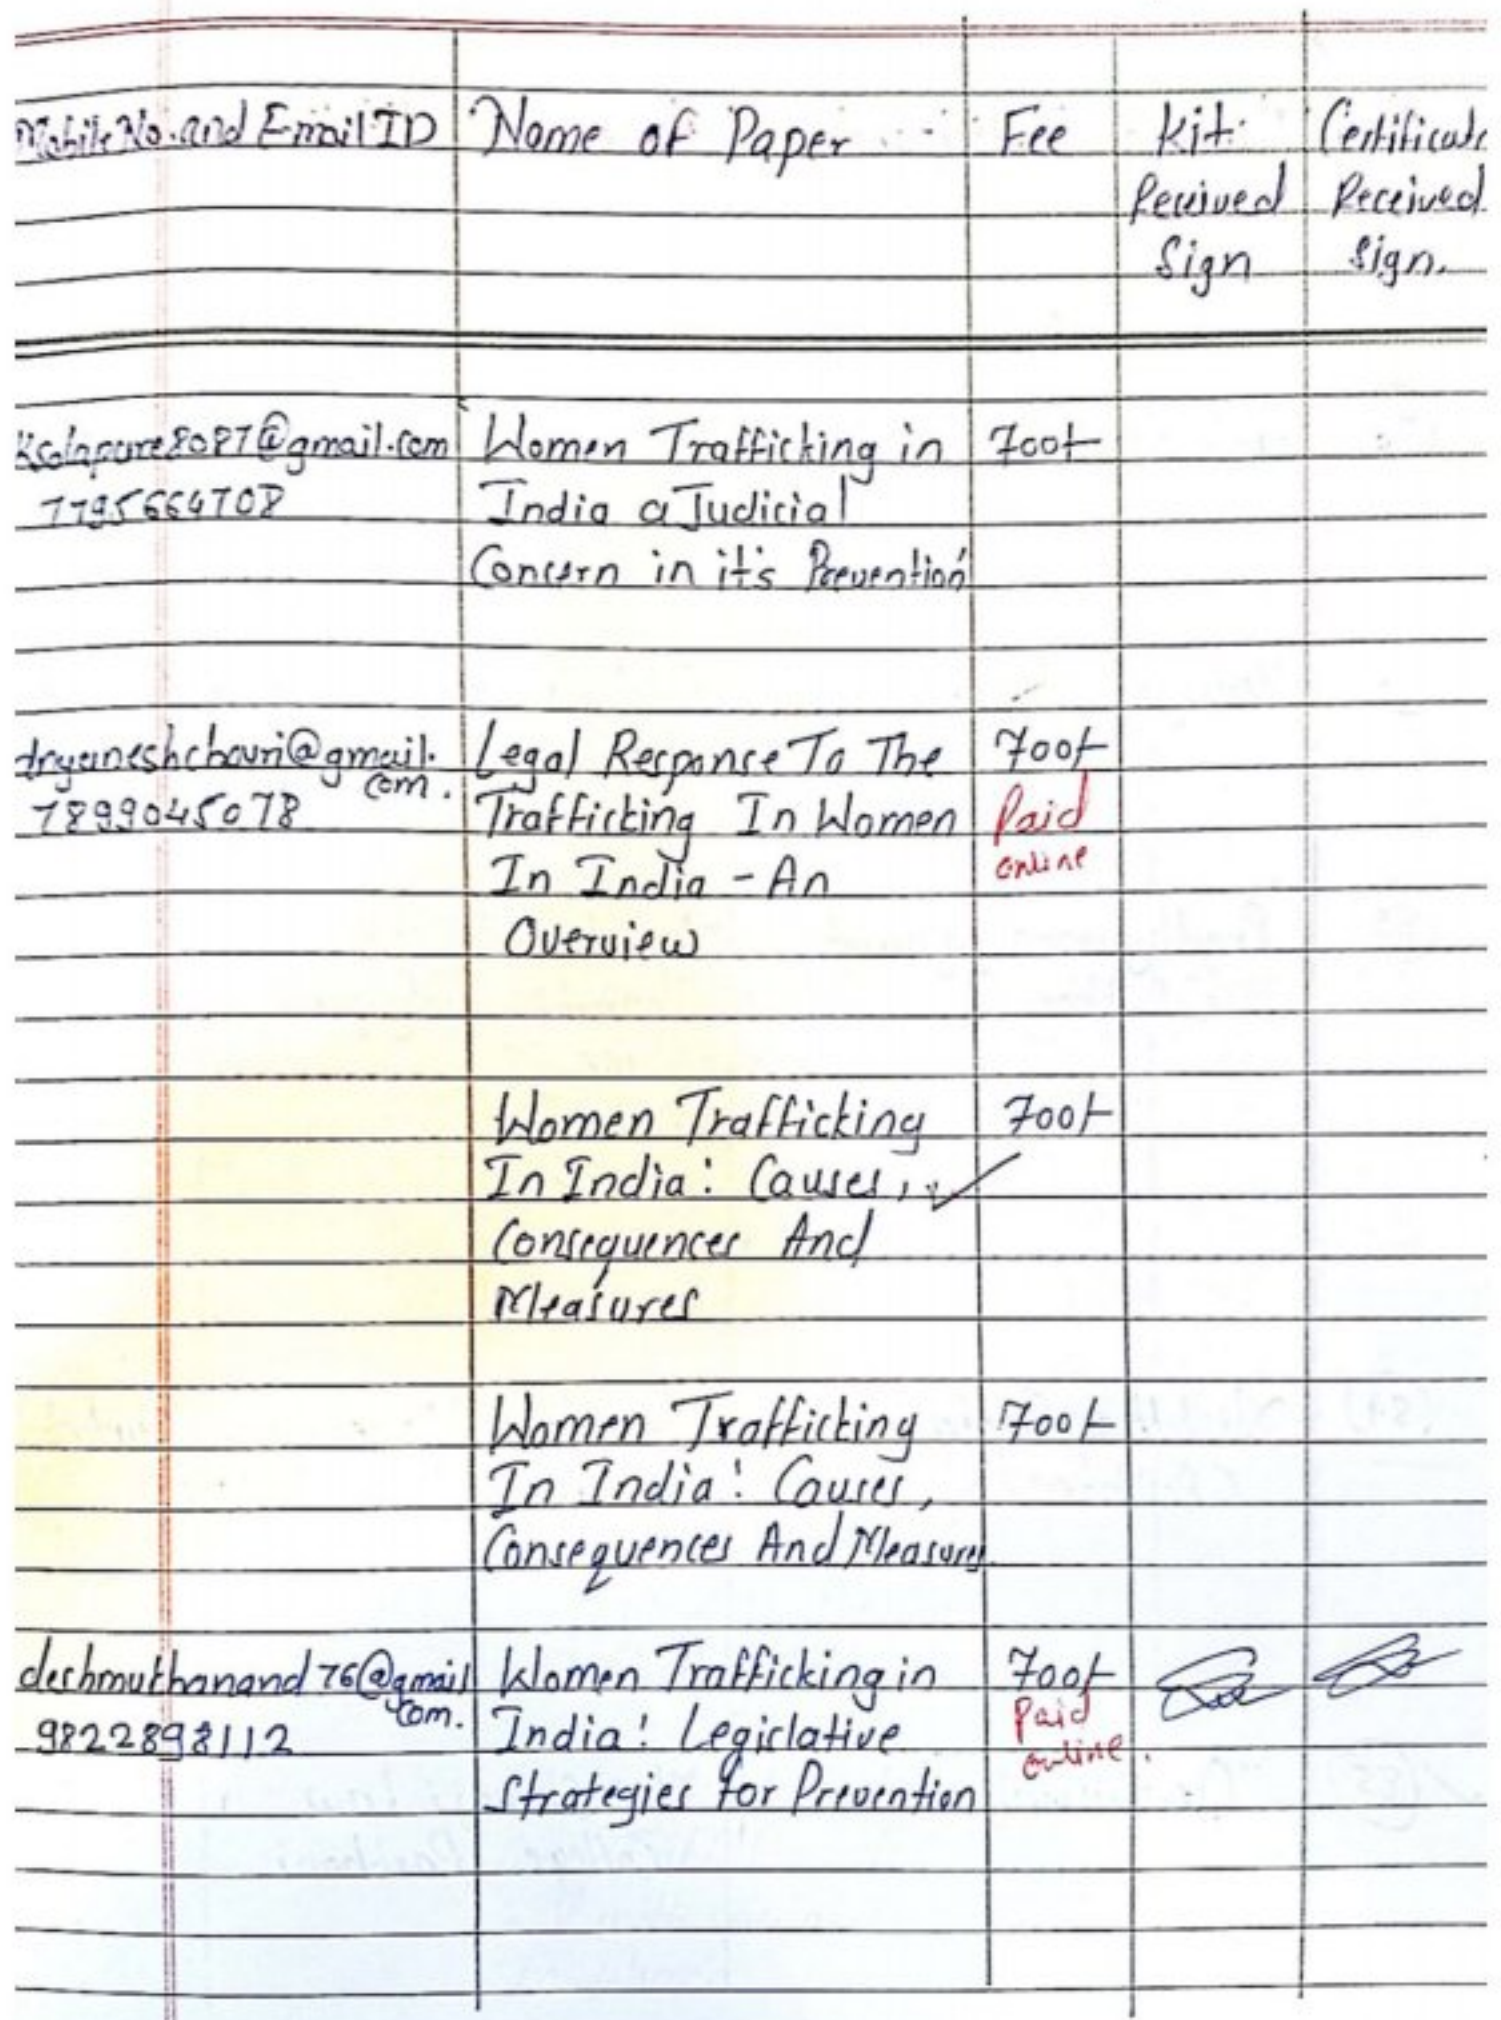 Mobile No. and Email ID
Name of Paper
Fee
Kit
Received
Sign
Certificate
Received
Sign.
7795664708
Women Trafficking in
India a Judicial
Concern in it's Prevention
700/-
com.
7899045078
Legal Response To The
Trafficking In Women
In India - An
Overview
700/-
Paid
online
Women Trafficking
In India: Causes,
Consequences And
Measures
700/-
Women Trafficking
In India: Causes,
Consequences And Measures
700/-
deshmukhanand76@gmail
com.
9822898112
Women Trafficking in
India: Legislative
Strategies for Prevention
700/-
Paid
online.